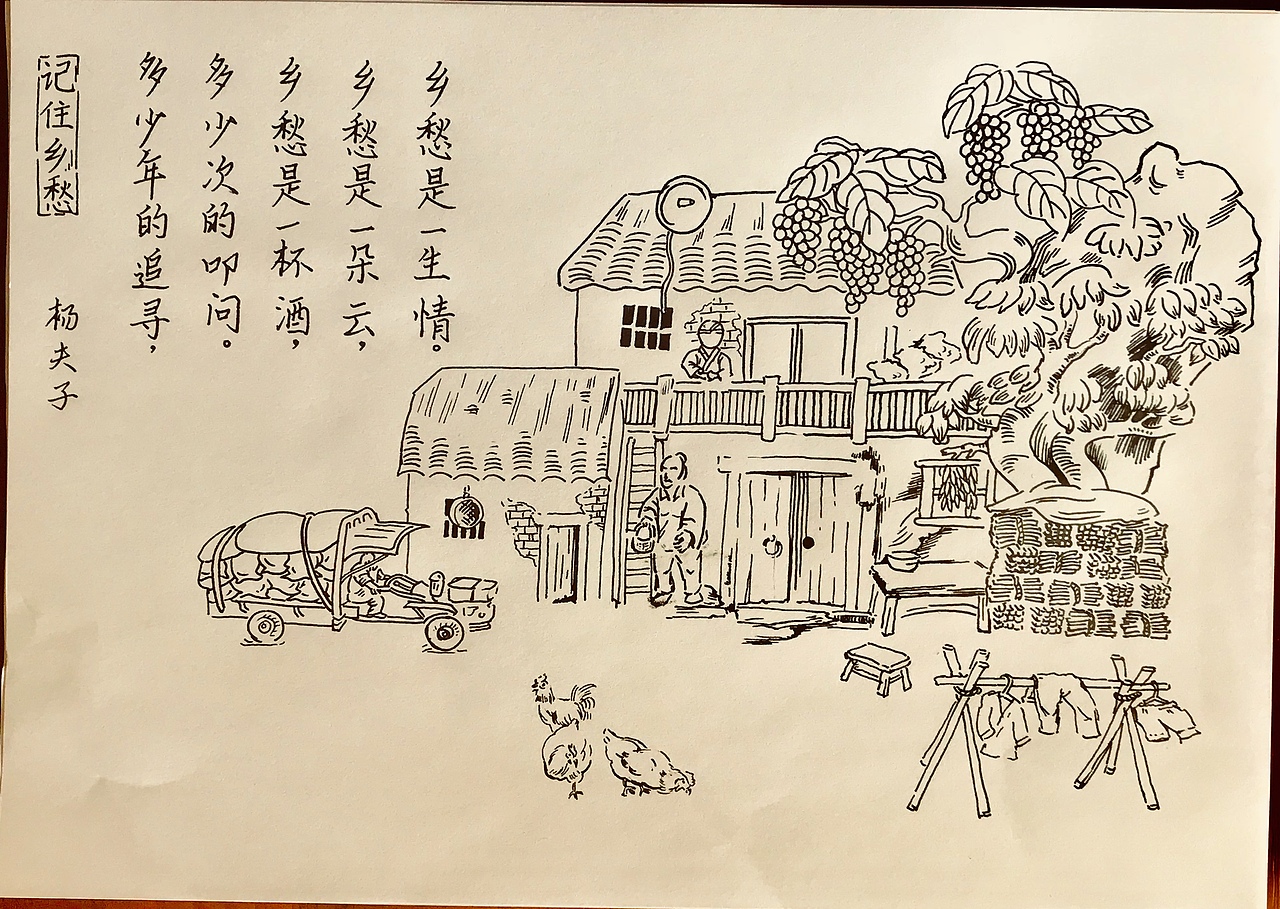 乡愁是一生情。
乡愁是一朵云，
乡愁是一杯酒，
多少次的叩问。
多少年的追寻，
记住乡愁
杨夫子